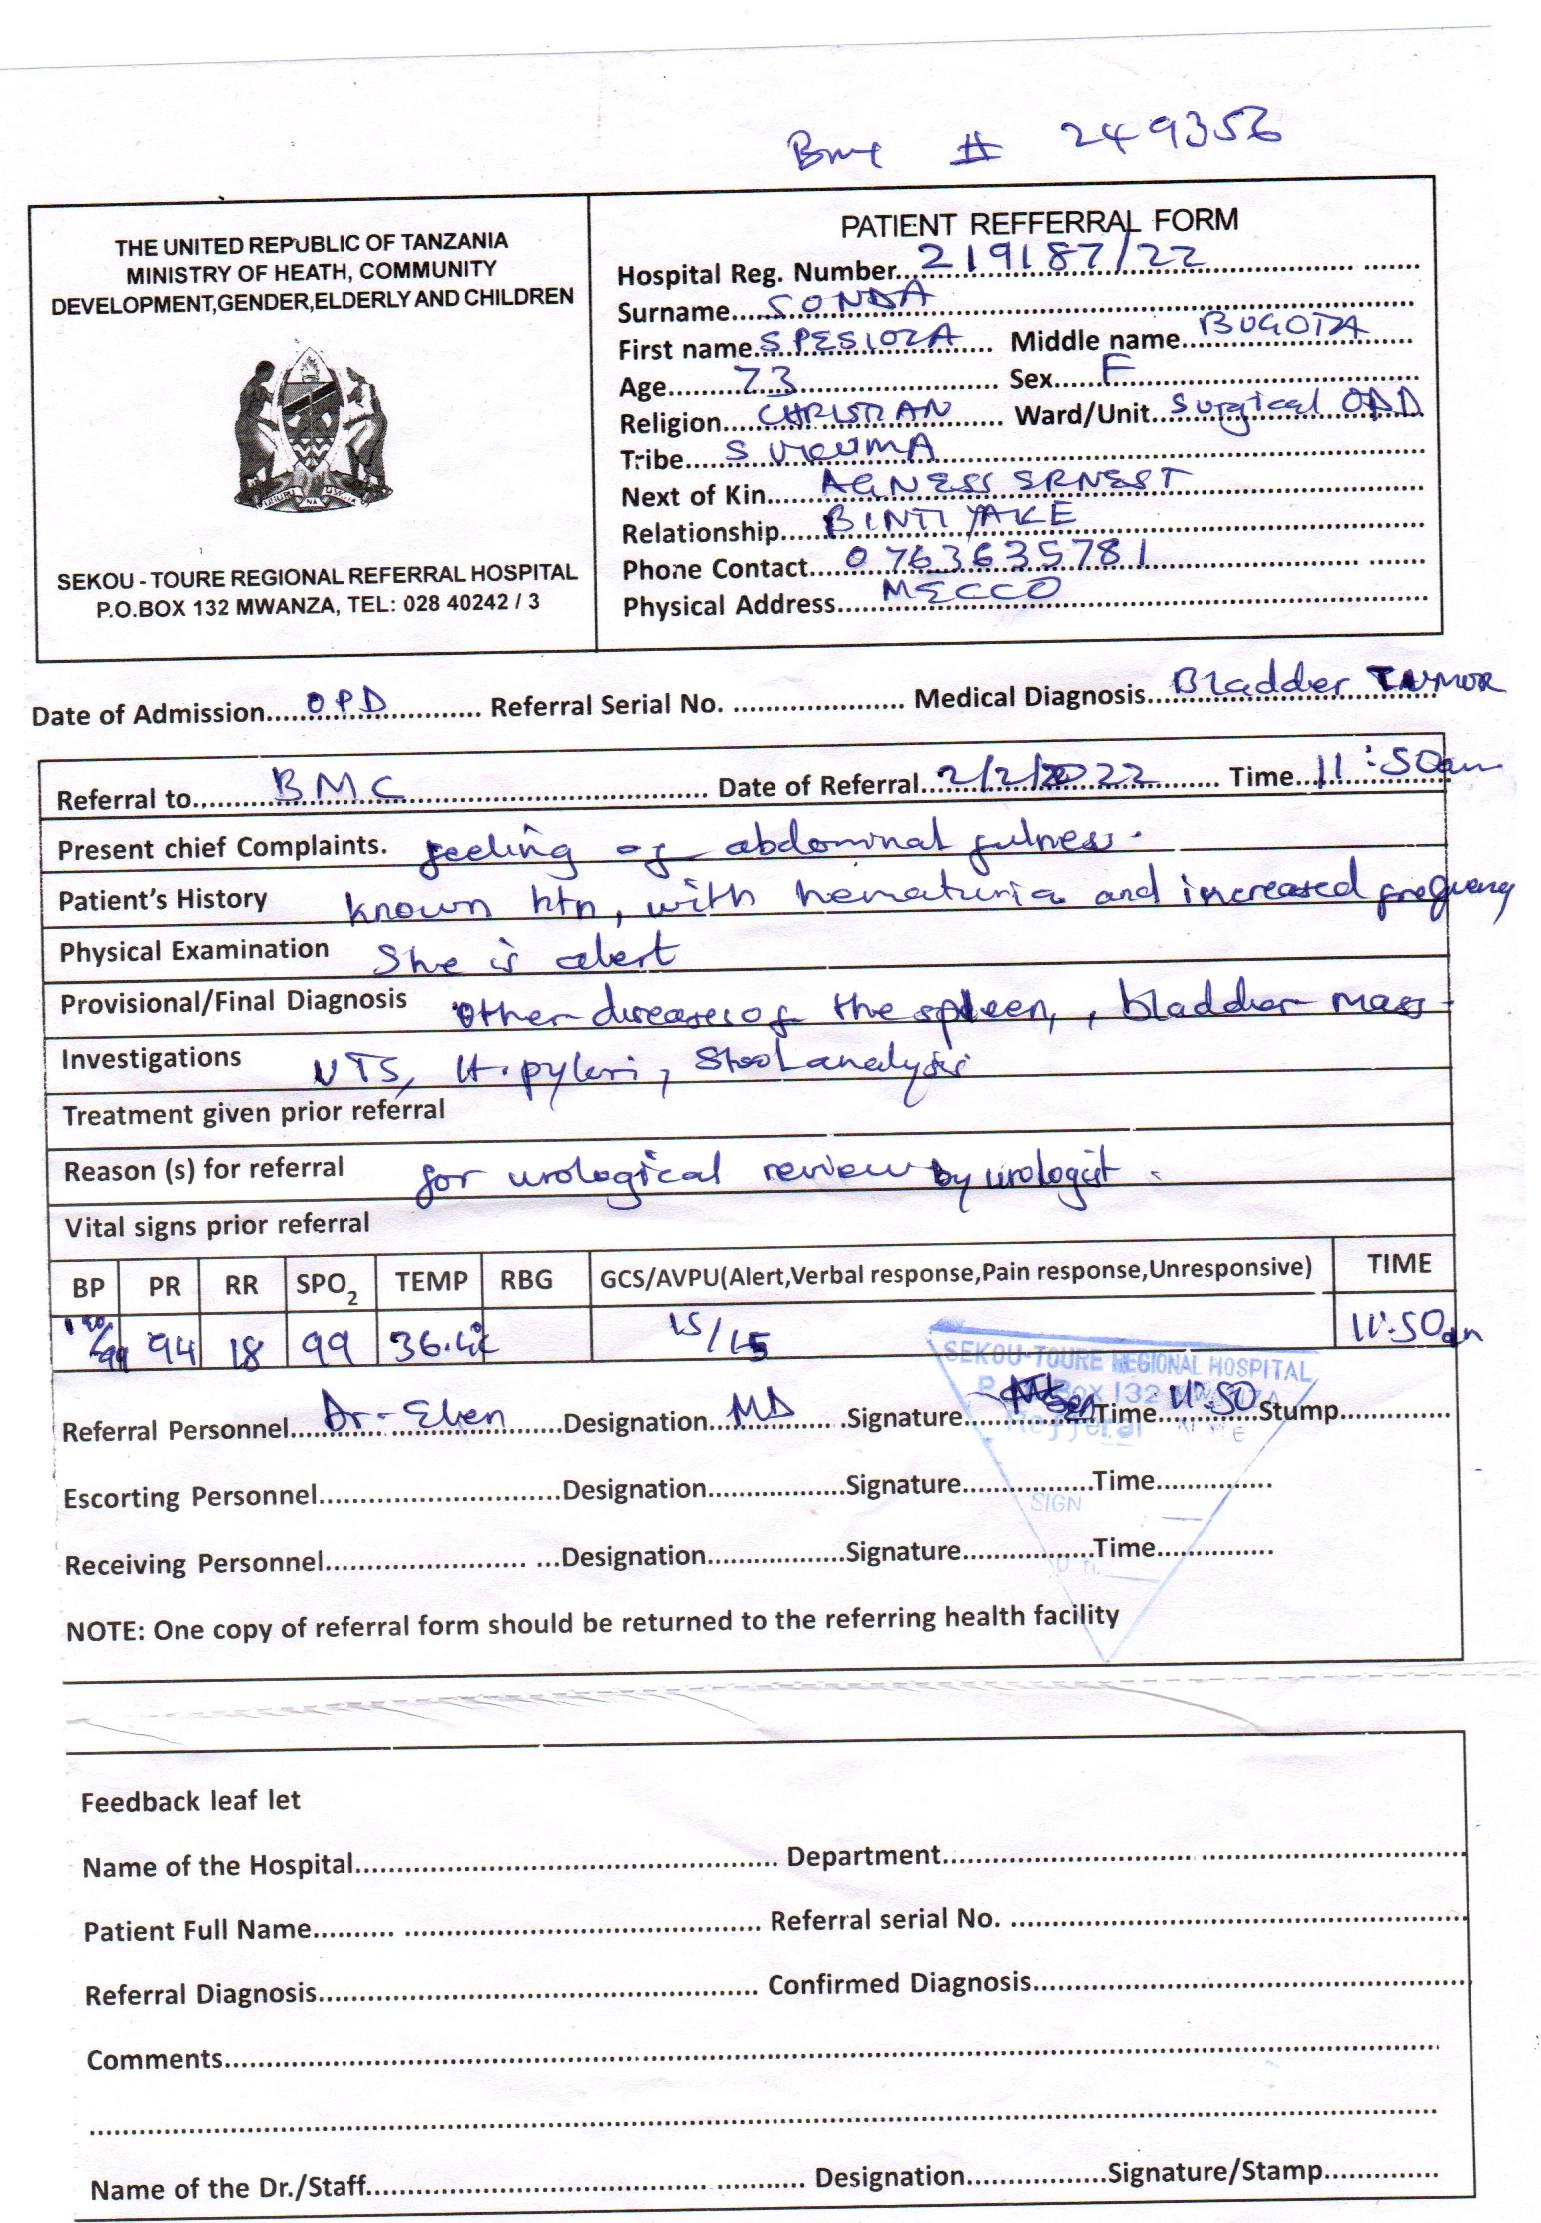 BMC # 249356
THE UNITED REPUBLIC OF TANZANIA
MINISTRY OF HEATH, COMMUNITY
DEVELOPMENT,GENDER,ELDERLY AND CHILDREN
SEKOU - TOURE REGIONAL REFERRAL HOSPITAL
P.O.BOX 132 MWANZA, TEL: 028 40242 / 3
PATIENT REFFERRAL FORM
Hospital Reg. Number...219187/22
Surname...SONDA
First name...SPESIOZA Middle name...BUGOTA
Age...73 Sex...F
Religion...CHRISTIAN Ward/Unit...Surgical OPD
Tribe...SUKUMA
Next of Kin...AGNESS ERNEST
Relationship...BINTI YAKE
Phone Contact...0763635781
Physical Address...MECCO
Date of Admission...OPD Referral Serial No. ... Medical Diagnosis...Bladder TUMOR
Referral to...BMC Date of Referral...2/2/2022 Time...11:50am
Present chief Complaints. feeling of abdominal fulness.
Patient's History known htn, with hematuria and increased frequency
Physical Examination She is alert
Provisional/Final Diagnosis Other diseases of the spleen, , bladder mass.
Investigations UTS, H.pylori, Stool analysis
Treatment given prior referral
Reason (s) for referral for urological review by urologist.
Vital signs prior referral
BP PR RR SPO2 TEMP RBG GCS/AVPU(Alert,Verbal response,Pain response,Unresponsive) TIME
94 18 99 15/15 11:50am
Referral Personnel...Dr. Designation...MD Signature... Time...11:50 Stump...
Escorting Personnel... Designation... Signature... Time...
Receiving Personnel... Designation... Signature... Time...
SEKOU-TOURE REGIONAL HOSPITAL
P. BOX 132
Refferal
SIGN
NOTE: One copy of referral form should be returned to the referring health facility
Feedback leaf let
Name of the Hospital... Department...
Patient Full Name... Referral serial No. ...
Referral Diagnosis... Confirmed Diagnosis...
Comments...
Name of the Dr./Staff... Designation... Signature/Stamp...